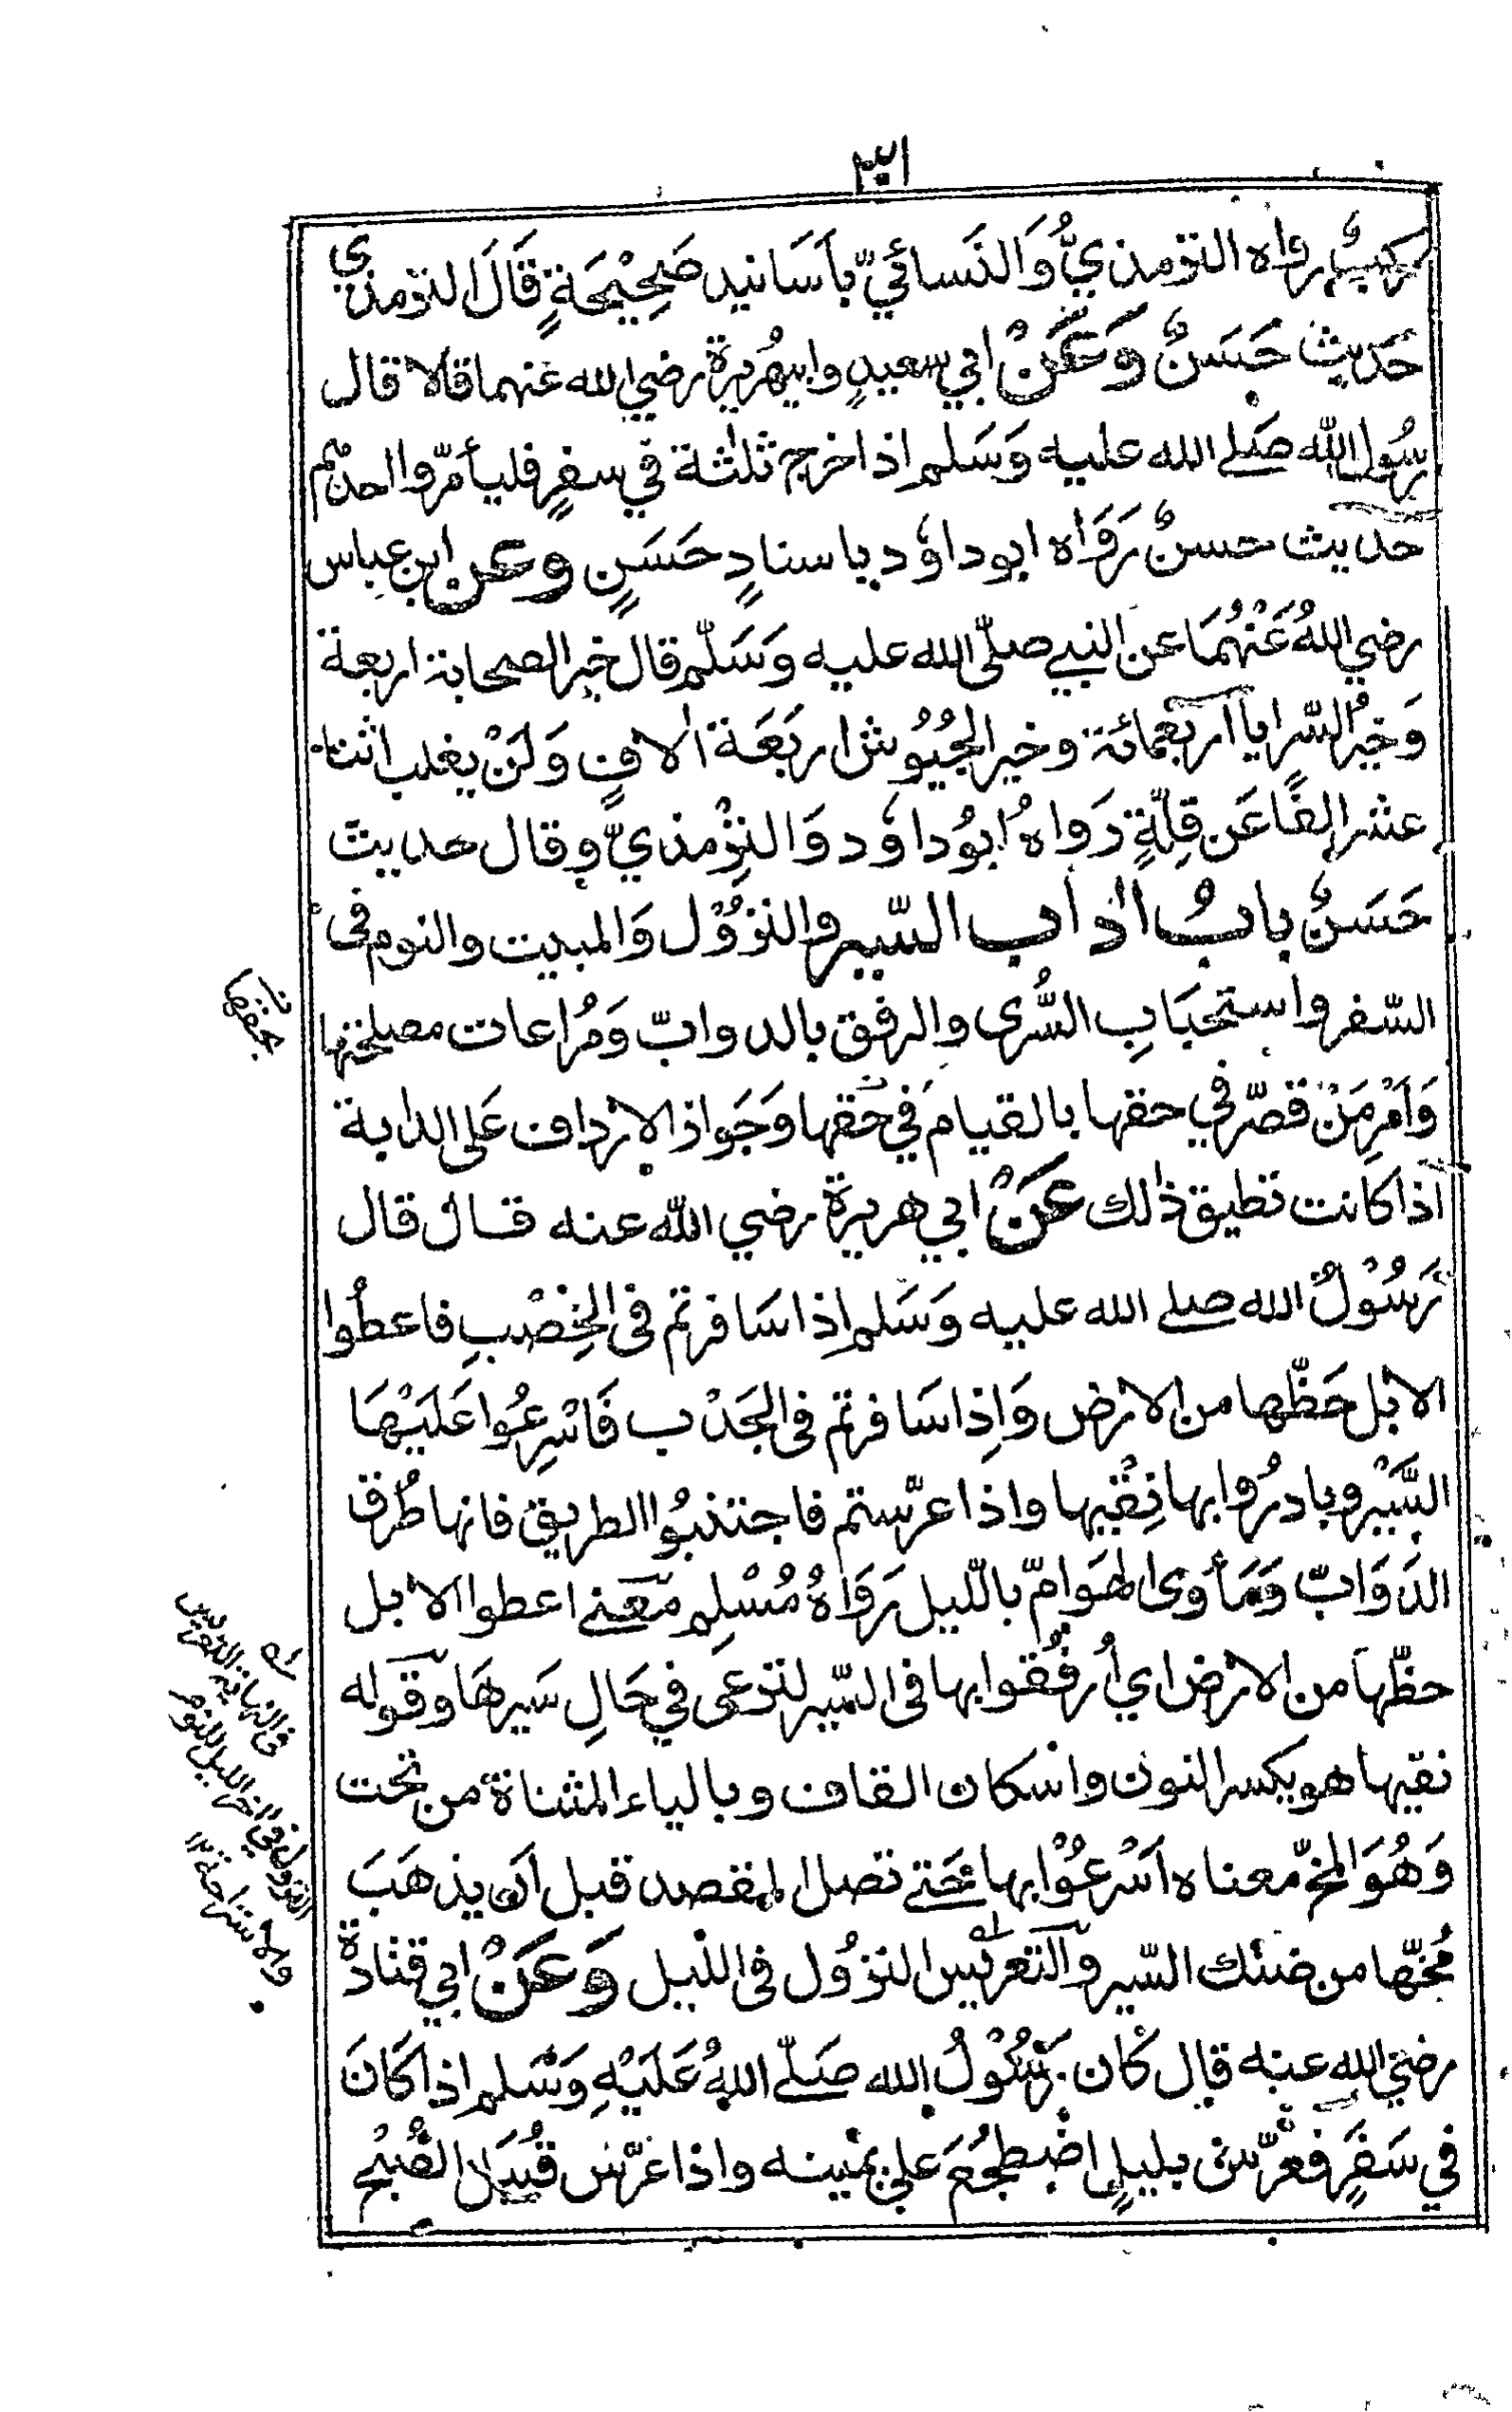 ركب رواه الترمذيُّ وَالنَسائيّ بأسَانيد صَحِيْحَةٍ قَالَ الترمذي
حَديث حَسَنٌ وَعَنْ ابي سعيدٍ وابي هُريرة رضي الله عنهما قالا قال
رسُول الله صَلى الله عليه وَسَلم اذا خرج ثلثة في سفرٍ فليأمّروا احدهم
حديث حسنٌ رَوَاه ابو داؤد باسنادٍ حَسَنٍ وعن ابن عباس
رضي اللهُ عَنْهُمَا عن النبي صلّى الله عليه وَسَلّم قال خير الصحابة اربعة
وَخيرُ السّرايا اربعمائة وخير الجُيُوش اربَعَة الافٍ وَلَنْ يغلب اثنا
عشر الفًا عَن قِلّةٍ رَواهُ ابُو داؤد وَالتِرْمذيّ وقال حديث
حَسَنٌ بابُ اداب السّير والنزُوْل وَالمبيت والنوم فى
السّفر واستحبَابِ السُّرى والرفق بالدوابّ وَمُراعات مصلحتها
وَاَمْرِ مَنْ قصّر في حقها بالقيام في حَقها وَجَواز الارداف عَلى الدابة
اذا كانت تطيق ذلك عَنْ ابي هريرة رضي الله عنه قال قال
رَسُوْلُ الله صلى الله عليه وَسَلم اذا سَافرتم فى الخِصْبِ فاعطُوا
الابل حَظّها من الارض وَاِذا سَافرتم فى الجَدْب فَاسْرِعُوا عَلَيْهَا
السَّيْر وبادرُوا بها نِقْيها واذا عرّستم فاجتنبُوا الطريق فانها طُرق
الدَوَابّ وَمَأوى الهَوَامّ بالّليل رَوَاهُ مُسْلِم معنى اعطوا الابل
حظّها من الارض اي اُرفُقوا بها فى السّير لترعى في حَالِ سَيرهَا وقوله
نقيها هو بكسر النون واسكان القاف وبالياء المثناة من تحت
وَهُوَ المخّ معناه اَسْرعُوْا بها حَتى تصل المقصد قبل اَن يذهَبَ
مُخّها من ضنك السّير والتعريس النزُول فى الليل وَعَنْ ابي قتادة
رضي الله عنه قال كان رَسُوْلُ الله صَلّى اللهُ عَلَيْهِ وَسَلم اذا كَانَ
في سَفَرٍ فعَرّس بليلٍ اضْطجَعَ على يمينه واذا عَرّس قُبَيل الصُّبْح
حقها
فى النهاية التعريس
النزول في اخر الليل للنوم
والاستراحة ١٢